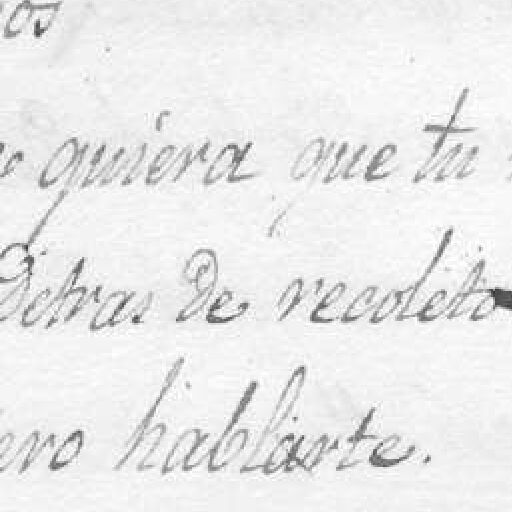 os
quiera que tu
Detras de recoleto
ero hablarte.